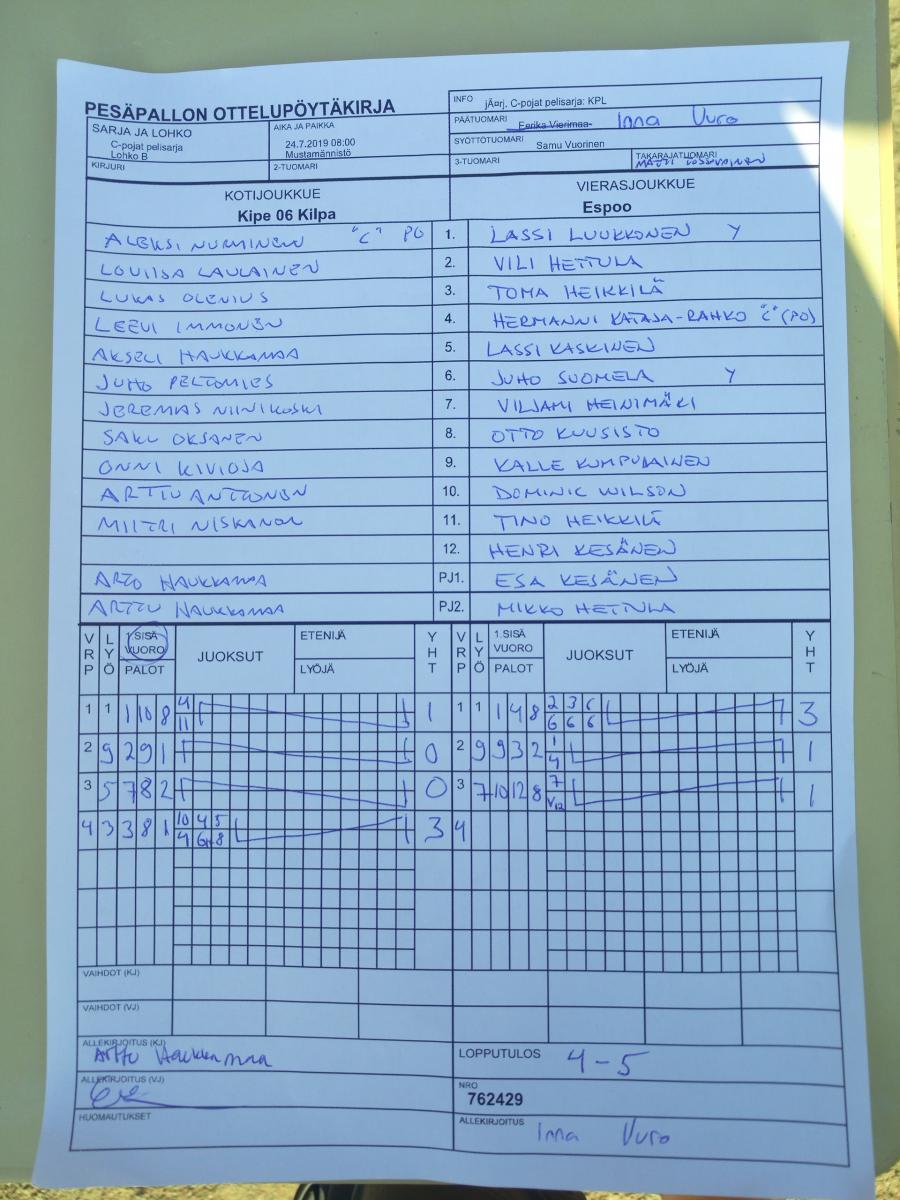 PESÄPALLON OTTELUPÖYTÄKIRJA
SARJA JA LOHKO
C-pojat pelisarja
Lohko B
AIKA JA PAIKKA
24.7.2019 08:00
Mustamännistö
KIRJURI
2-TUOMARI
INFO jÄ¤rj. C-pojat pelisarja: KPL
PÄÄTUOMARI Eerika Vierimaa Inna Vuro
SYÖTTÖTUOMARI Samu Vuorinen
3-TUOMARI
TAKARAJATUOMARI
MATTI
KOTIJOUKKUE
Kipe 06 Kilpa
VIERASJOUKKUE
Espoo
ALEKSI NURMINEN "C" PO 1. LASSI LUUKKONEN Y
LOUIISA LAULAINEN 2. VILI HETTULA
LUKAS OLENIUS 3. TOMA HEIKKILÄ
LEEVI IMMONEN 4. HERMANNI KATAJA-RAHKO "C" (PO)
AKSELI HAUKKAMAA 5. LASSI KASKINEN
JUHO PELTOMIES 6. JUHO SUOMELA Y
JEREMAS NIINIKOSKI 7. VILJAMI HEINIMÄKI
SAKU OKSANEN 8. OTTO KUUSISTO
ONNI KIVIOJA 9. KALLE KUMPULAINEN
ARTTU ANTTONEN 10. DOMINIC WILSON
MIITRI NISKANEN 11. TINO HEIKKILÄ
12. HENRI KESÄNEN
ARTO HAUKKAMAA PJ1. ESA KESÄNEN
ARTTU HAUKKAMAA PJ2. MIKKO HETTULA
VRP LYÖ 1.SISÄ VUORO PALOT JUOKSUT ETENIJÄ LYÖJÄ YHT VRP LYÖ 1.SISÄ VUORO PALOT JUOKSUT ETENIJÄ LYÖJÄ YHT
1 1 1 10 8 4 1 1 1 1 4 8 2 3 6 3
11 6 6 6
2 9 2 9 1 0 2 9 9 3 2 1 1
4
3 5 7 8 2 0 3 7 10 12 8 7 1
V12
4 3 3 8 1 10 4 5 3 4
4 6 8
VAIHDOT (KJ)
VAIHDOT (VJ)
ALLEKIRJOITUS (KJ)
Arttu Haukkamaa
LOPPUTULOS 4-5
ALLEKIRJOITUS (VJ)
NRO
762429
HUOMAUTUKSET
ALLEKIRJOITUS Inna Vuro